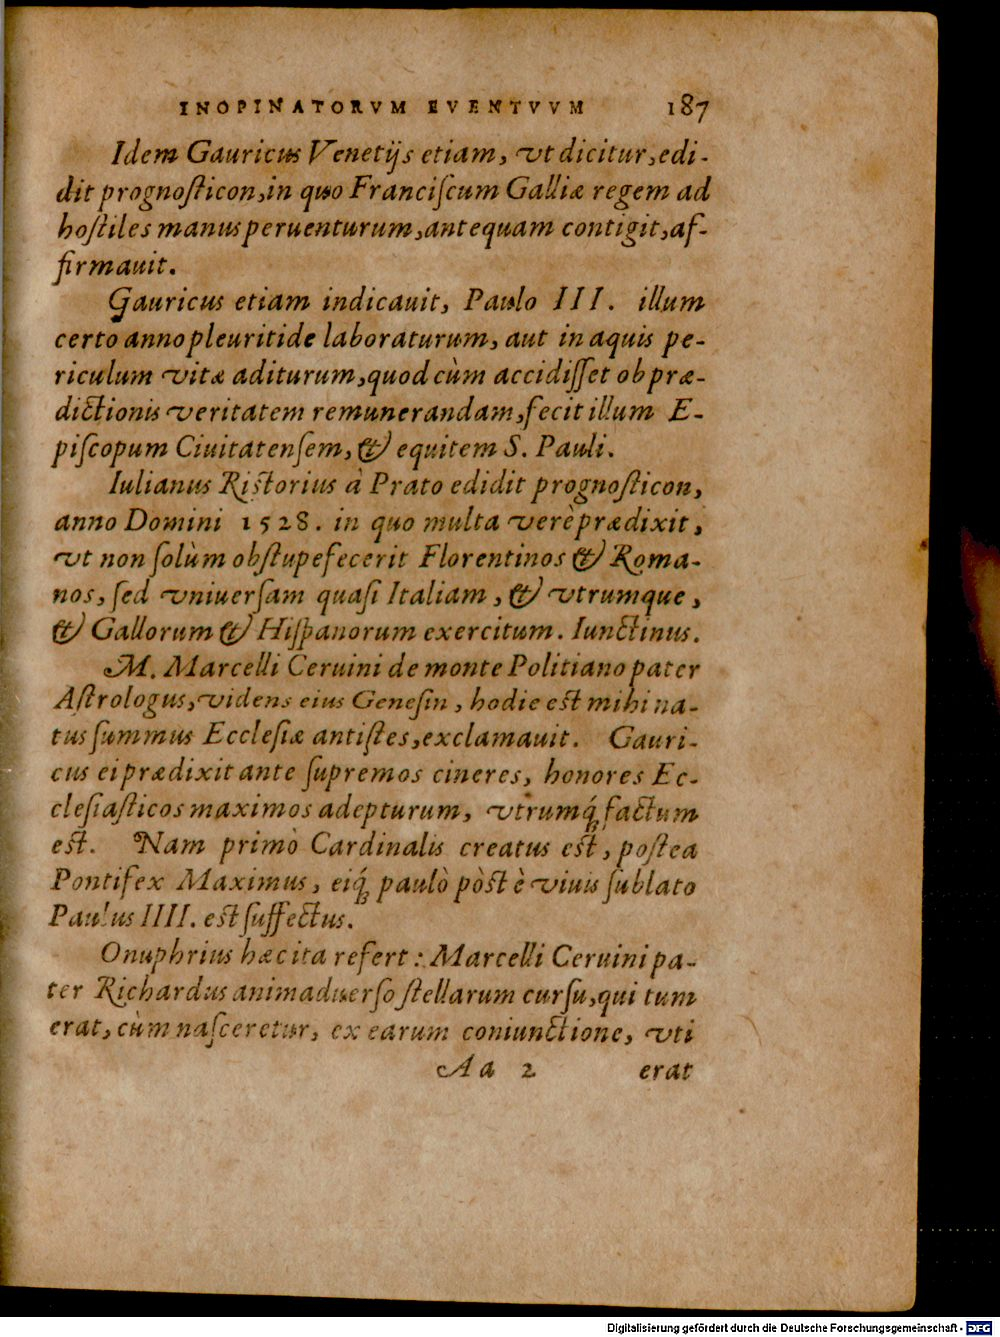 INOPINATORVM EVENTVVM 187
Idem Gauricus Venetijs etiam, vt dicitur, edi-
dit prognoſticon, in quo Franciſcum Galliæ regem ad
hoſtiles manus peruenturum, antequam contigit, af-
firmauit.
Gauricus etiam indicauit, Paulo III. illum
certo anno pleuritide laboraturum, aut in aquis pe-
riculum vitæ aditurum, quod cùm accidiſſet ob præ-
dictionis veritatem remunerandam, fecit illum E-
piſcopum Ciuitatenſem, & equitem S. Pauli.
Iulianus Riſtorius à Prato edidit prognoſticon,
anno Domini 1528. in quo multa verè prædixit,
vt non ſolùm obſtupefecerit Florentinos & Roma-
nos, ſed vniuerſam quaſi Italiam, & vtrumque,
& Gallorum & Hiſpanorum exercitum. Iunctinus.
M. Marcelli Ceruini de monte Politiano pater
Aſtrologus, videns eius Geneſin, hodie eſt mihi na-
tus ſummus Eccleſiæ antiſtes, exclamauit. Gauri-
cus ei prædixit ante ſupremos cineres, honores Ec-
cleſiaſticos maximos adepturum, vtrumq́; factum
eſt. Nam primò Cardinalis creatus eſt, poſtea
Pontifex Maximus, eiq́; paulò pòſt è viuis ſublato
Paulus IIII. eſt ſuffectus.
Onuphrius hæc ita refert: Marcelli Ceruini pa-
ter Richardus animaduerſo ſtellarum curſu, qui tum
erat, cùm naſceretur, ex earum coniunctione, vti
Aa 2 erat
Digitalisierung gefördert durch die Deutsche Forschungsgemeinschaft - DFG